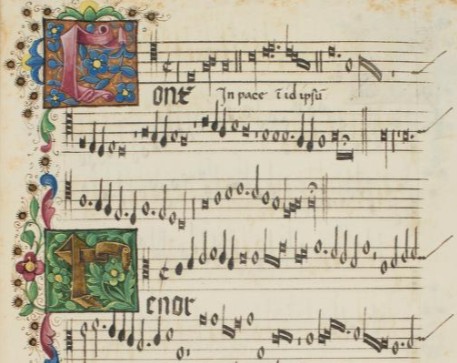 Cont In pace ī id ipsū
Tenor